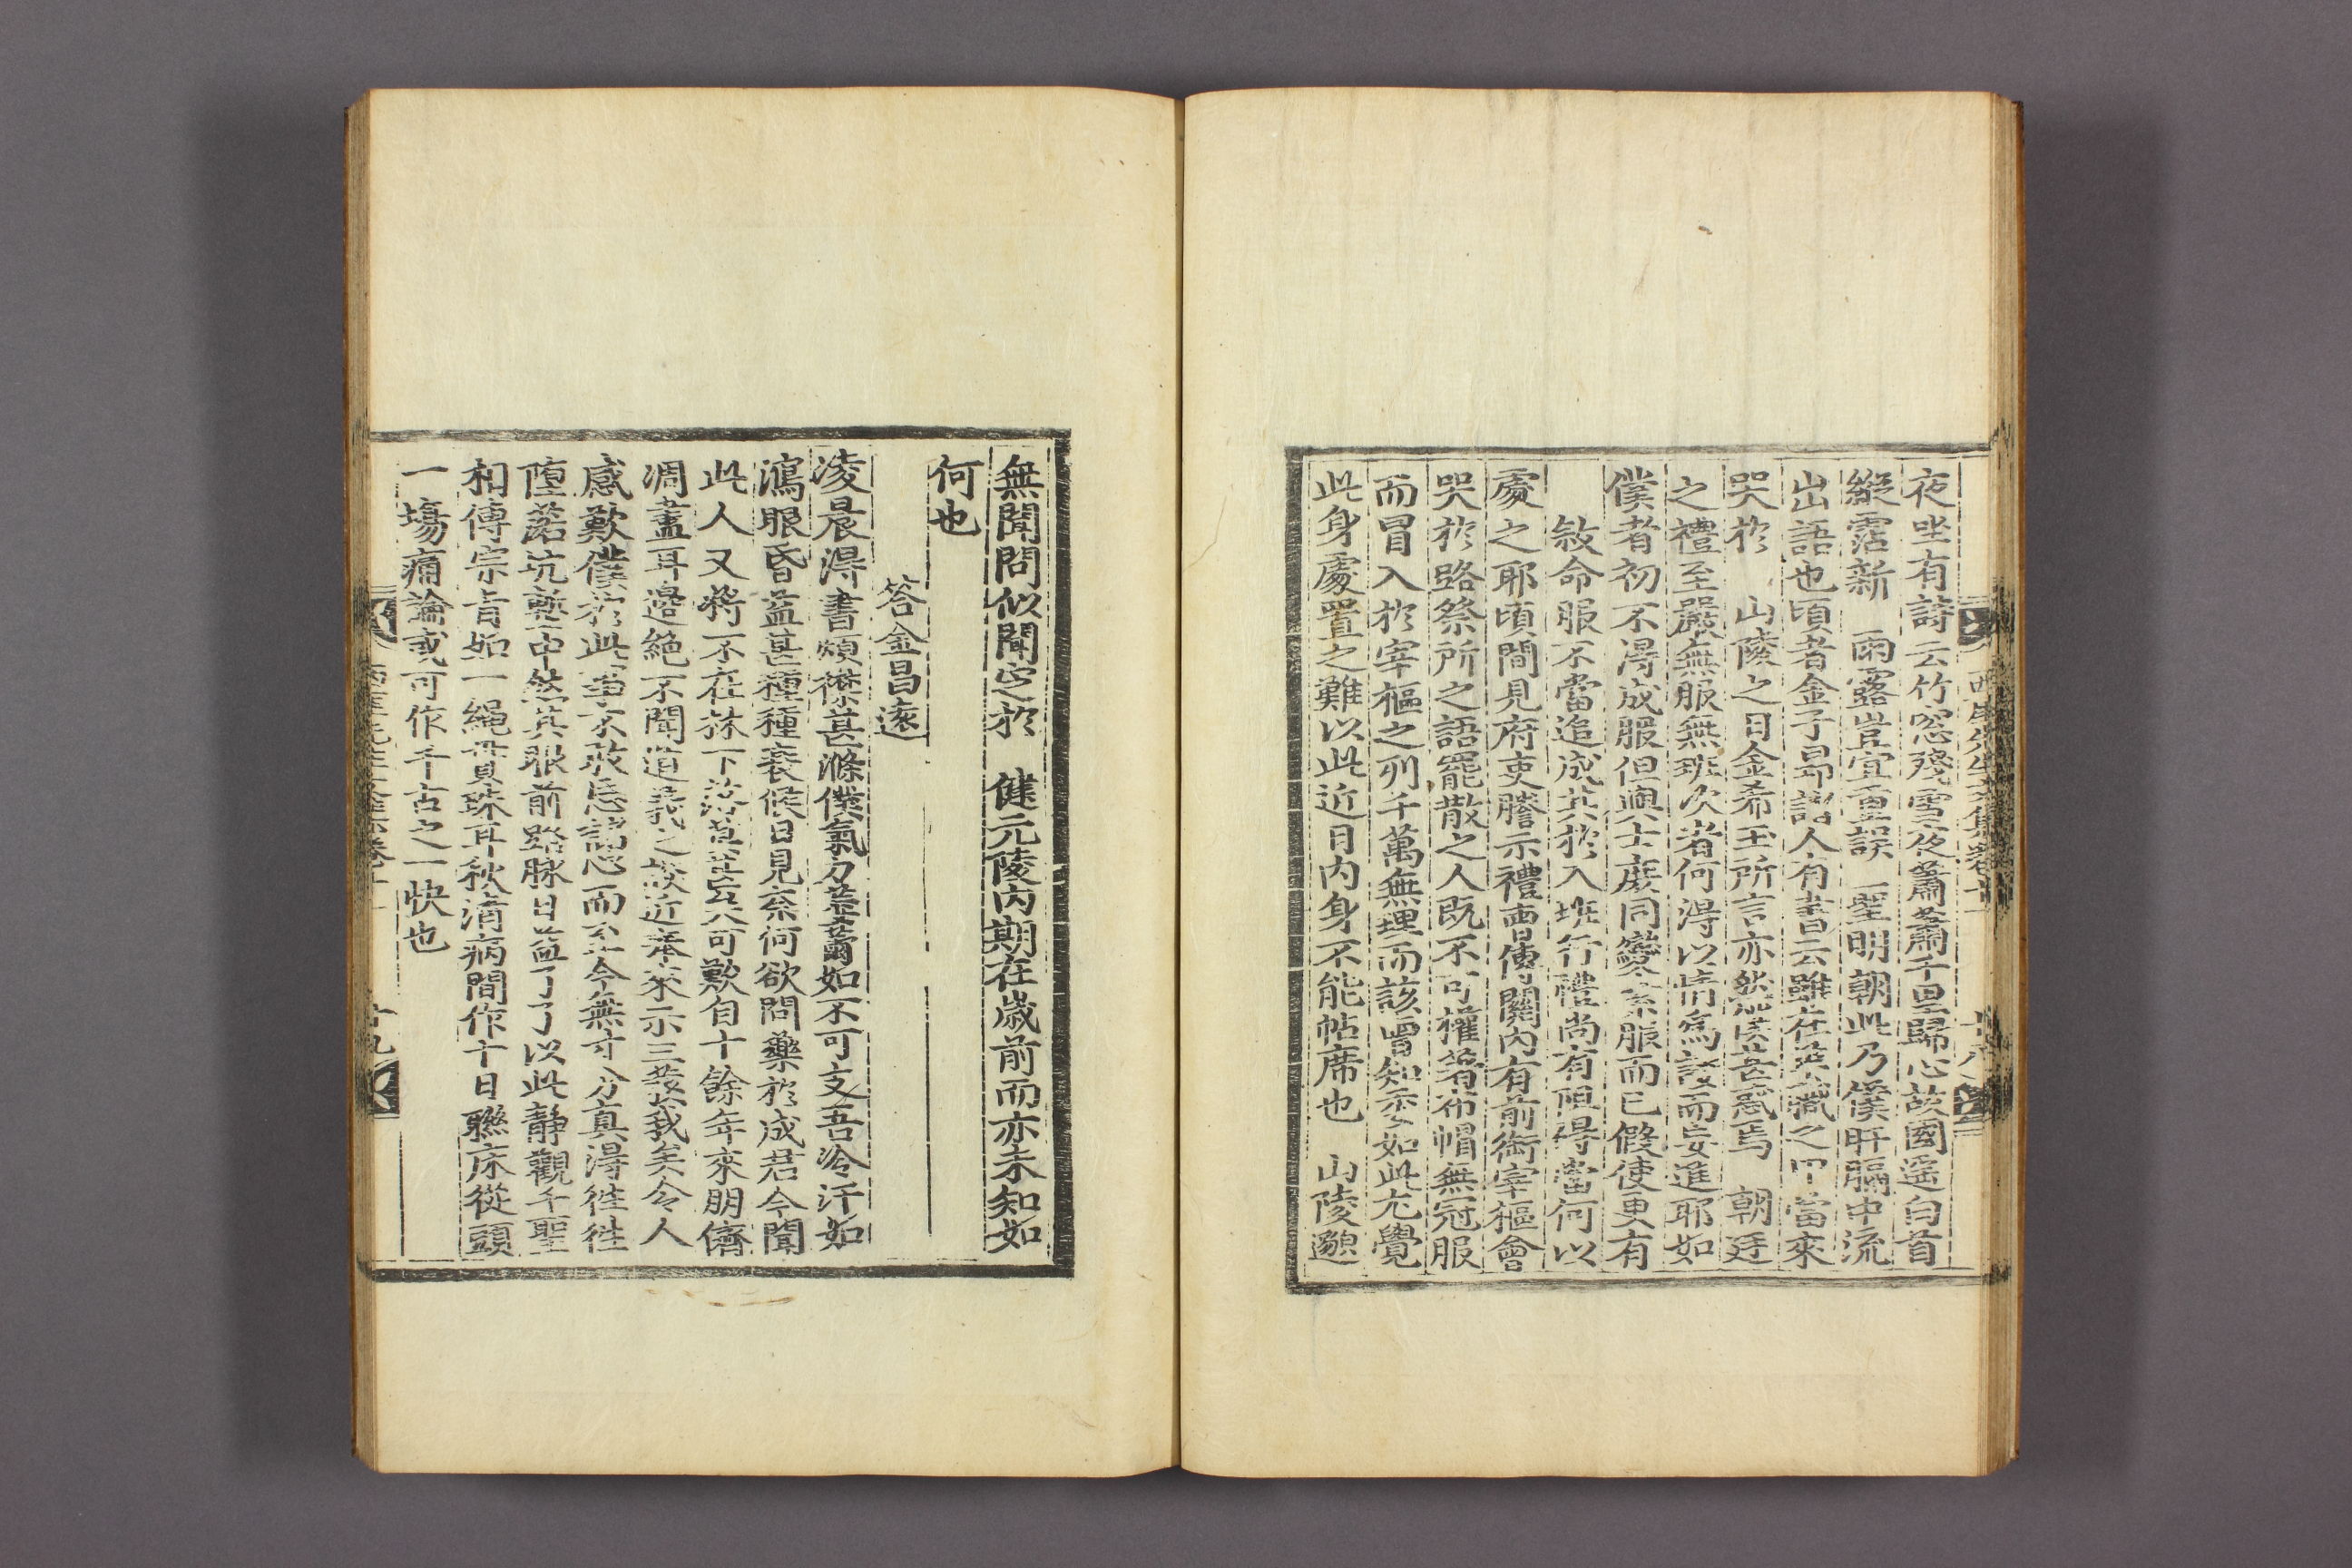 夜坐有詩云竹窓殘雪夜蕭蕭千里歸心故國遥白首
縱霑新 雨露豈宜重誤 聖明朝此乃僕肝膈中流
出語也頃者金子昂謂人有書云雖在 之中當來
哭於 山陵之日金希玉所言亦然僕甚惑焉 朝廷
之禮至嚴無服無班次者何得以情爲說而妄進耶如
僕者初不得成服但與士庶同變 服而已假使更有
敍命服不當追成其於入班行禮尚有阻碍當何以
處之耶頃間見府吏謄示禮曹傳關內有前銜宰樞會
哭於路祭所之語罷散之人旣不可權着布帽無冠服
而冒入於宰樞之列千萬無理而該曹知委如此尤覺
此身處置之難以此近日內身不能帖席也 山陵邈
西厓先生文集卷十一 十八
無聞問似聞定於 健元陵內期在歲前而亦未知如
何也
答金昌遠
凌晨得書頗襟甚滌僕氣力荼薾如不可支吾冷汗如
瀉眼昏益甚種種衰候日見奈何欲問藥於成君今聞
此人又將不在林下落莫甚矣可歎自十餘年來朋儕
凋盡耳邊絶不聞道義之談近奉來示三發我矣令人
感歎僕於此事不敢忘諸心而至今無寸分真得徃徃
墮落坑塹中然其眼前路脉日益了了以此靜觀千聖
相傳宗旨如一繩貫珠耳秋淸病間作十日聯床從頭
一塲痛論或可作千古之一快也
西厓先生文集卷十一 十九